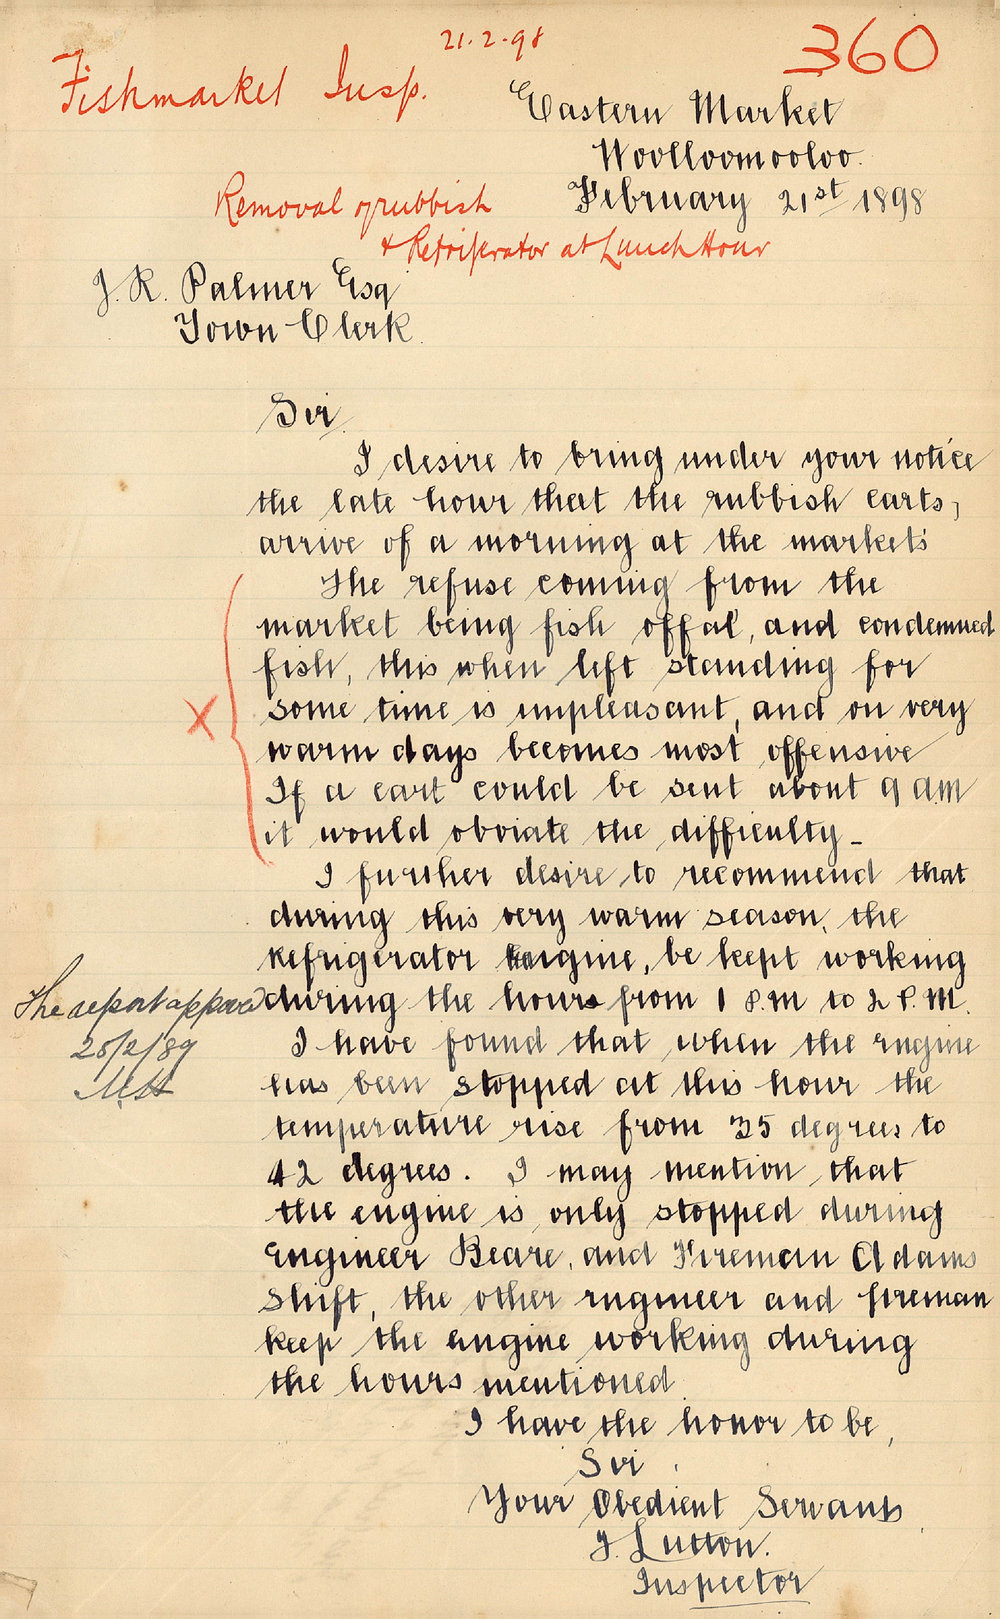 21.2.98
360
Fishmarket Insp.
Eastern Market
Woolloomooloo.
Removal of rubbish
February 21st 1898
& Refrigerator at Lunch Hour
J. R. Palmer Esq
Town Clerk.
Sir,
I desire to bring under your notice
the late hour that the rubbish carts,
arrive of a morning at the markets
The refuse coming from the
market being fish offal, and condemned
fish, this when left standing for
X some time is unpleasant, and on very
warm days becomes most offensive
If a cart could be sent about 9 am
it would obviate the difficulty -
I further desire to recommend that
during this very warm season, the
Refrigerator Engine, be kept working
during the hours from 1 P.M to 2 P.M.
The report approved
25/2/89
I have found that when the engine
has been stopped at this hour the
temperature rise from 35 degrees to
42 degrees. I may mention that
the engine is only stopped during
Engineer Beare, and Fireman Adams
Shift, the other engineer and fireman
keep the engine working during
the hours mentioned
I have the honor to be,
Sir
Your Obedient Servant
J. Lutton.
Inspector